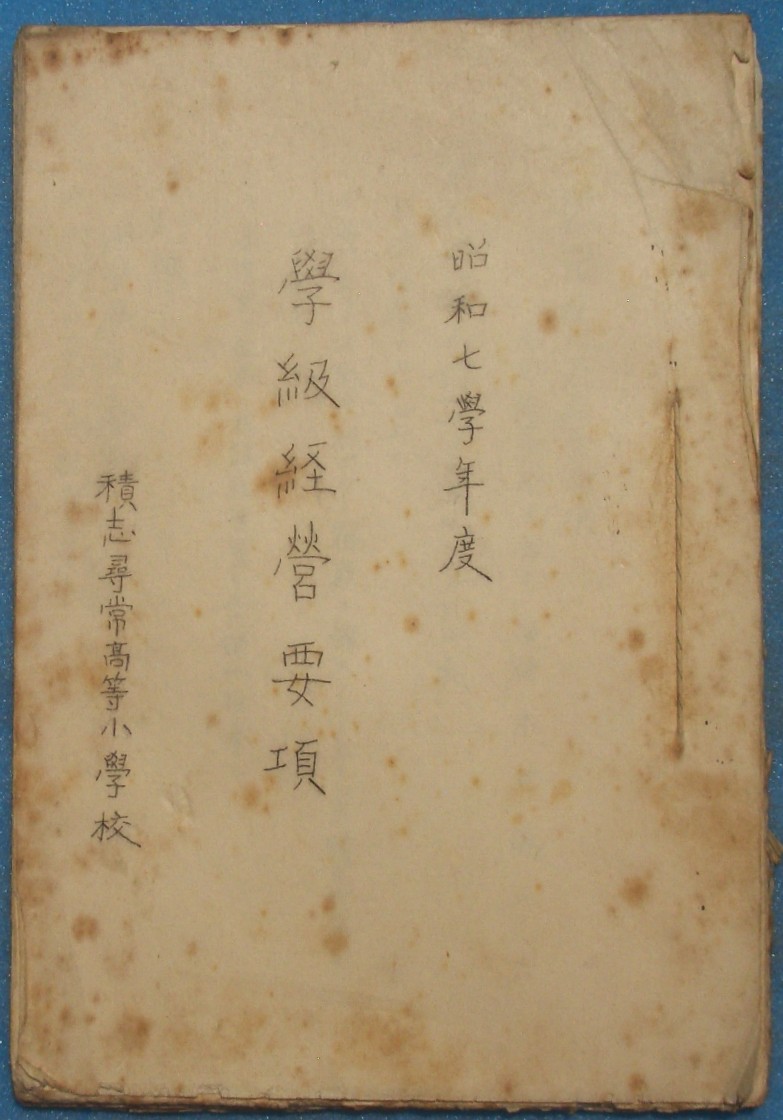 昭和七學年度
學級経營要項
積志尋常高等小學校